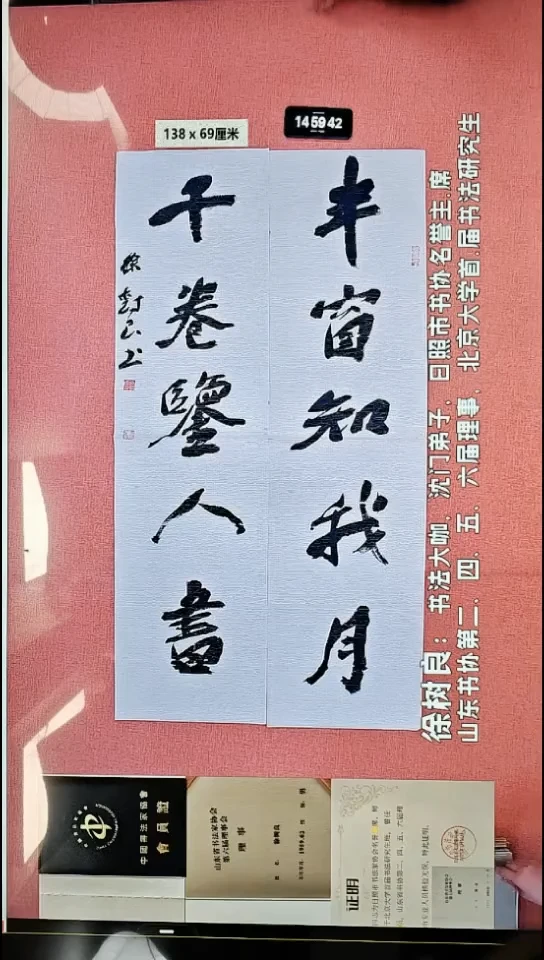 138 x 69厘米
14 59 42
半窗知我月
千卷鑒人書
徐树良书
徐树良：书法大咖、沈门弟子、日照市书协名誉主席
山东书协第二、四、五、六届理事、北京大学首届书法研究生
中國書法家協會
會員證
山东省书法家协会
第六届理事会
理事
证明